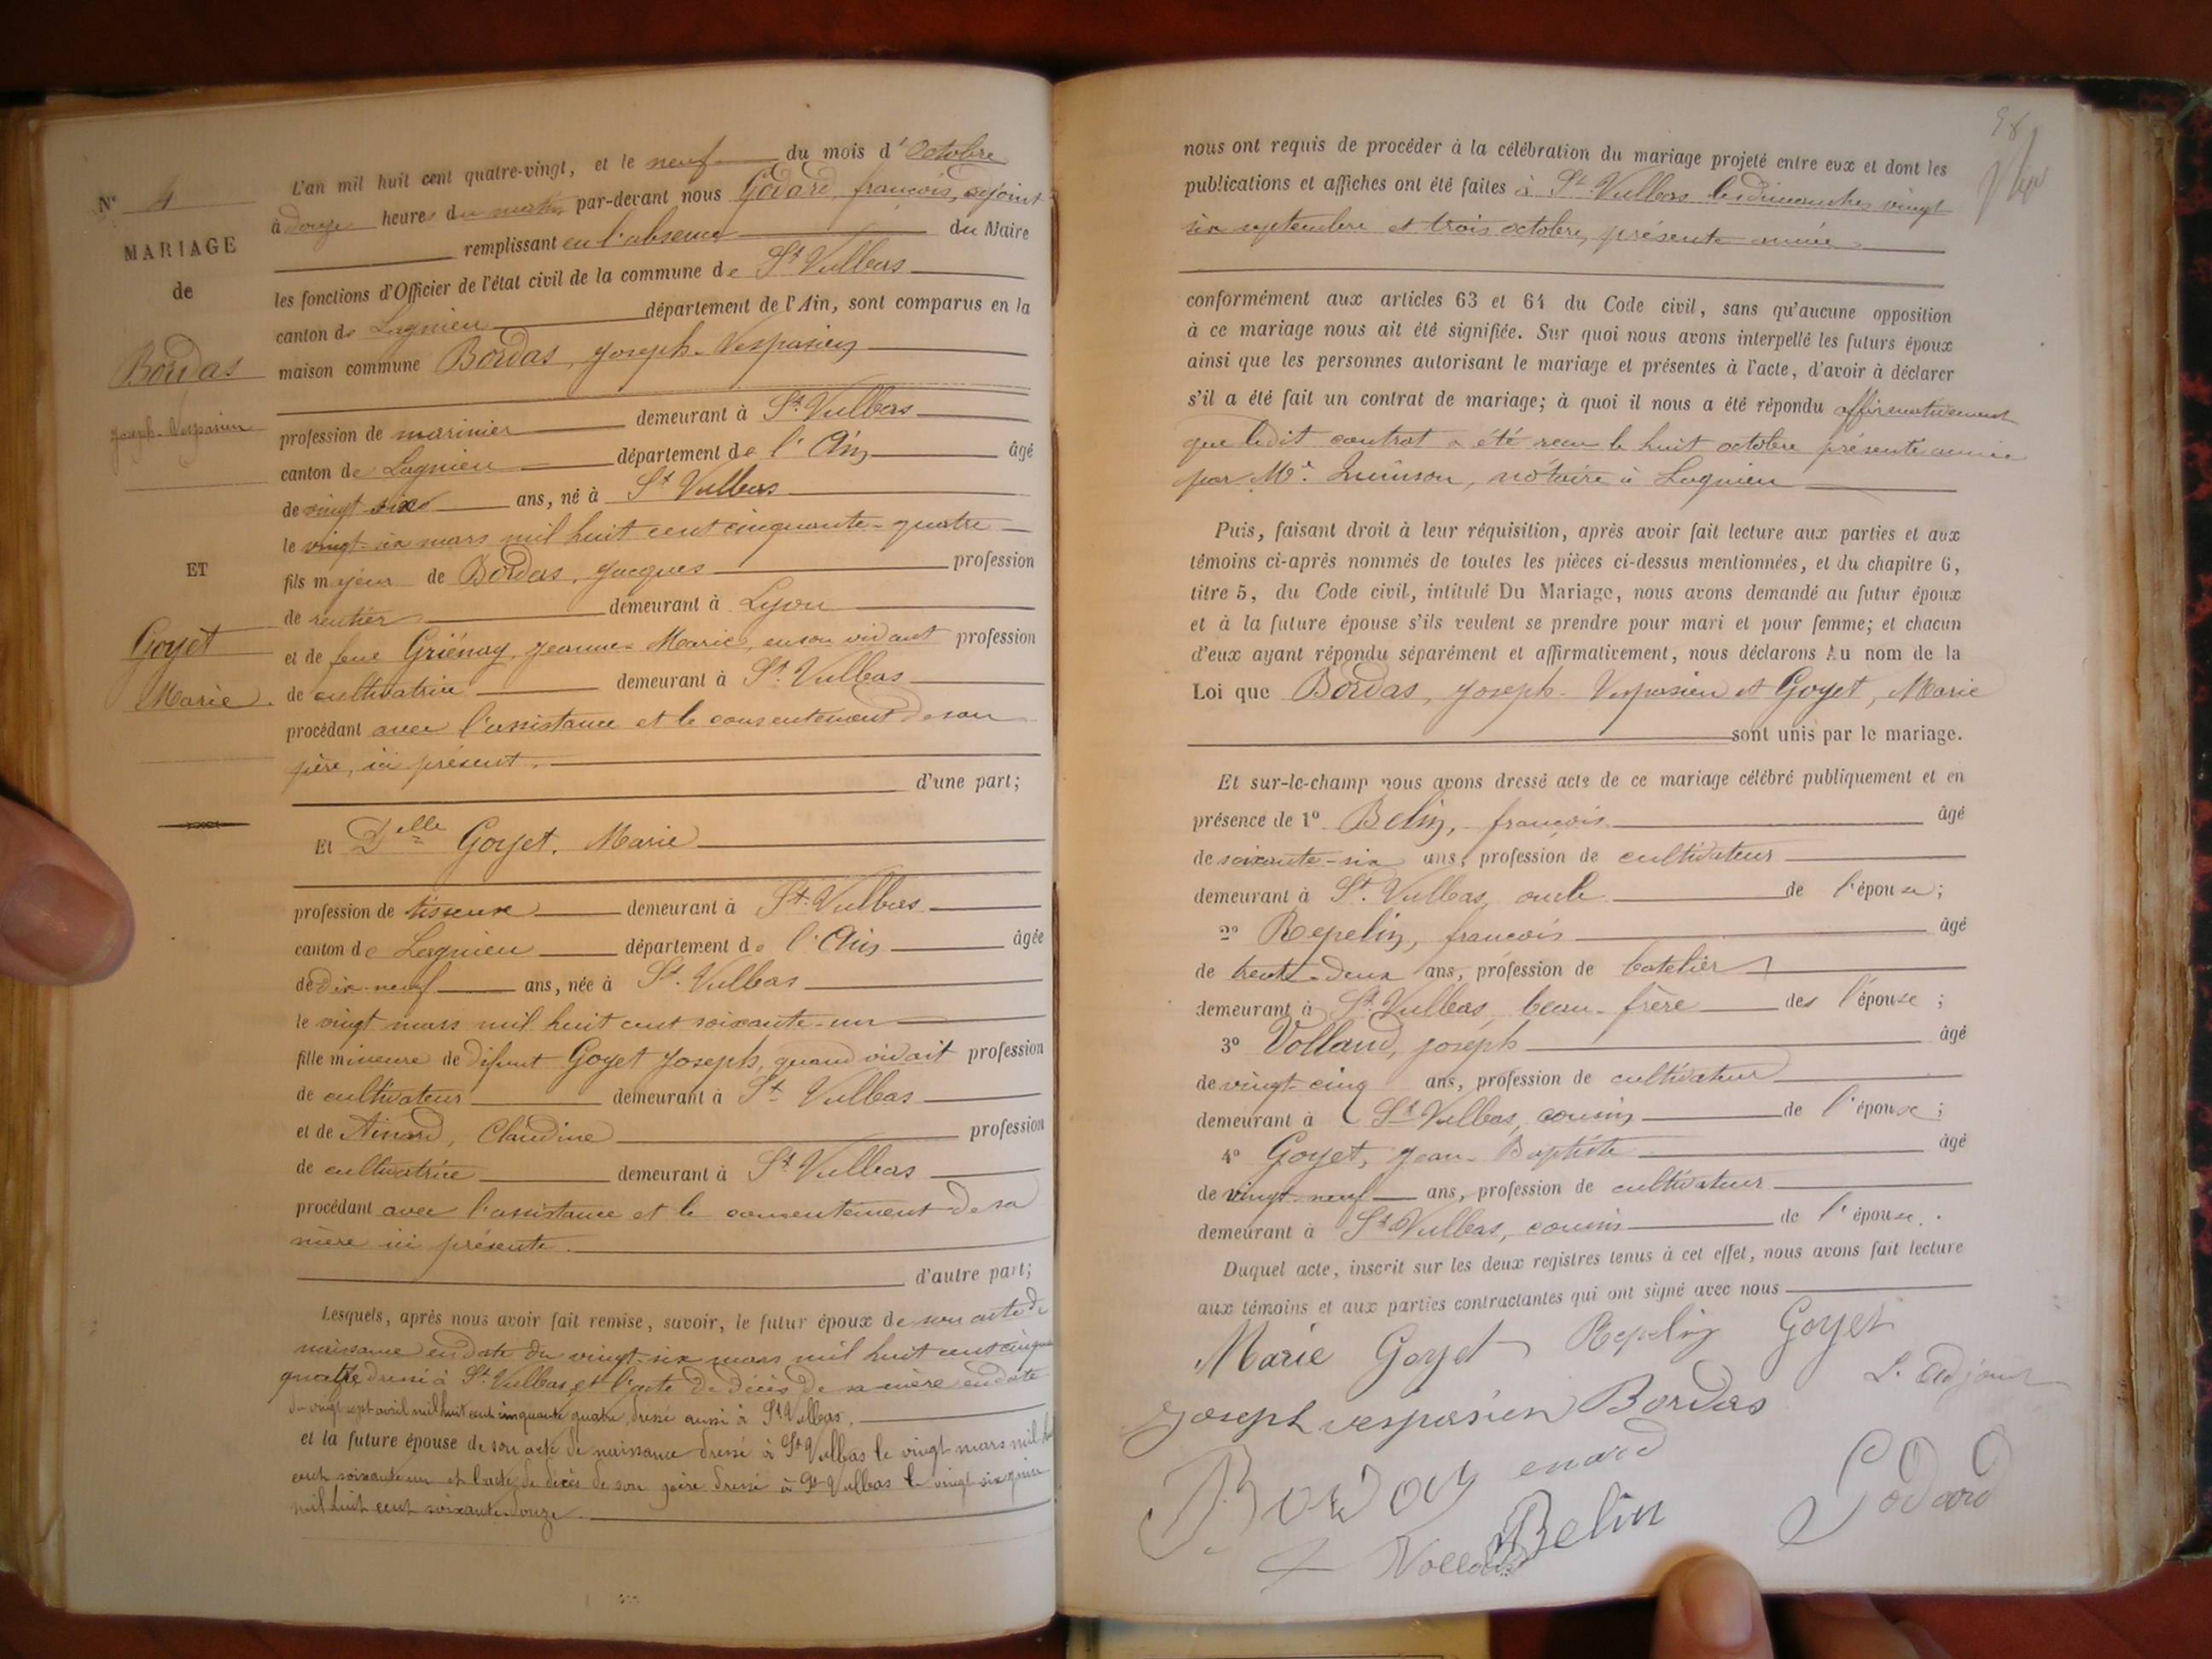 N° 4
MARIAGE
de
Bordas
Joseph-Vespasien
ET
Goyet
Marie.
L'an mil huit cent quatre-vingt, et le neuf du mois d'Octobre
à douze heures du matin par-devant nous Godard, françois, adjoint
remplissant en l'absence du Maire
les fonctions d'Officier de l'état civil de la commune de St Vulbas
canton de Lagnieu département de l'Ain, sont comparus en la
maison commune Bordas, Joseph-Vespasien
profession de marinier demeurant à St Vulbas
canton de Lagnieu département de l'Ain âgé
de vingt-six ans, né à St Vulbas
le vingt-six mars mil huit cent cinquante-quatre
fils majeur de Bordas, Jacques profession
de rentier demeurant à Lyon
et de feue Griénay, Jeanne-Marie, en son vivant profession
de cultivatrice demeurant à St Vulbas
procédant avec l'assistance et le consentement de son
père, ici présent.
d'une part;
Et Delle Goyet, Marie
profession de tisseuse demeurant à St Vulbas
canton de Lagnieu département de l'Ain âgée
de dix-neuf ans, née à St. Vulbas
le vingt mars mil huit cent soixante-un
fille mineure de défunt Goyet Joseph, quand vivait profession
de cultivateur demeurant à St Vulbas
et de Ainard, Claudine profession
de cultivatrice demeurant à St Vulbas
procédant avec l'assistance et le consentement de sa
mère ici présente.
d'autre part;
Lesquels, après nous avoir fait remise, savoir, le futur époux de son acte de
naissance en date du vingt-six mars mil huit cent cinquante
quatre dressé à St Vulbas, et l'acte de décès de sa mère en date
du vingt sept avril mil huit cent cinquante quatre, dressé aussi à St Vulbas.
et la future épouse de son acte de naissance dressé à St Vulbas le vingt mars mil huit
cent soixante un et l'acte de décès de son père dressé à St Vulbas le vingt-six
mil huit cent soixante-douze.
98
nous ont requis de procéder à la célébration du mariage projeté entre eux et dont les
publications et affiches ont été faites à St Vulbas les dimanches vingt
six septembre et trois octobre, présente année.
conformément aux articles 63 et 64 du Code civil, sans qu'aucune opposition
à ce mariage nous ait été signifiée. Sur quoi nous avons interpellé les futurs époux
ainsi que les personnes autorisant le mariage et présentes à l'acte, d'avoir à déclarer
s'il a été fait un contrat de mariage; à quoi il nous a été répondu affirmativement
que ledit contrat a été reçu le huit octobre présente année
par Me Quinson, notaire à Lagnieu
Puis, faisant droit à leur réquisition, après avoir fait lecture aux parties et aux
témoins ci-après nommés de toutes les pièces ci-dessus mentionnées, et du chapitre 6,
titre 5, du Code civil, intitulé Du Mariage, nous avons demandé au futur époux
et à la future épouse s'ils veulent se prendre pour mari et pour femme; et chacun
d'eux ayant répondu séparément et affirmativement, nous déclarons Au nom de la
Loi que Bordas, Joseph-Vespasien et Goyet, Marie
sont unis par le mariage.
Et sur-le-champ nous avons dressé acte de ce mariage célébré publiquement et en
présence de 1° Belin, françois âgé
de soixante-six ans, profession de cultivateur
demeurant à St. Vulbas, oncle de l'épouse;
2° Repelin, francois âgé
de trente-deux ans, profession de batelier
demeurant à St Vulbas, beau-frère des l'épouse;
3° Volland, joseph âgé
de vingt-cinq ans, profession de cultivateur
demeurant à St Vulbas, cousin de l'épouse;
4° Goyet, Jean-Baptiste âgé
de vingt-neuf ans, profession de cultivateur
demeurant à St Vulbas, cousin de l'épouse.
Duquel acte, inscrit sur les deux registres tenus à cet effet, nous avons fait lecture
aux témoins et aux parties contractantes qui ont signé avec nous
Marie Goyet Repelin Goyet
L'adjoint
joseph vespasien Bordas
Borday enard
Belin Godard
Volland